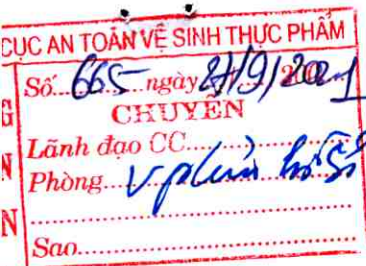 CỤC AN TOÀN VỆ SINH THỰC PHẨM
Số...665...ngày 27/9/2021
CHUYỂN
Lãnh đạo CC
Phòng...
Sao